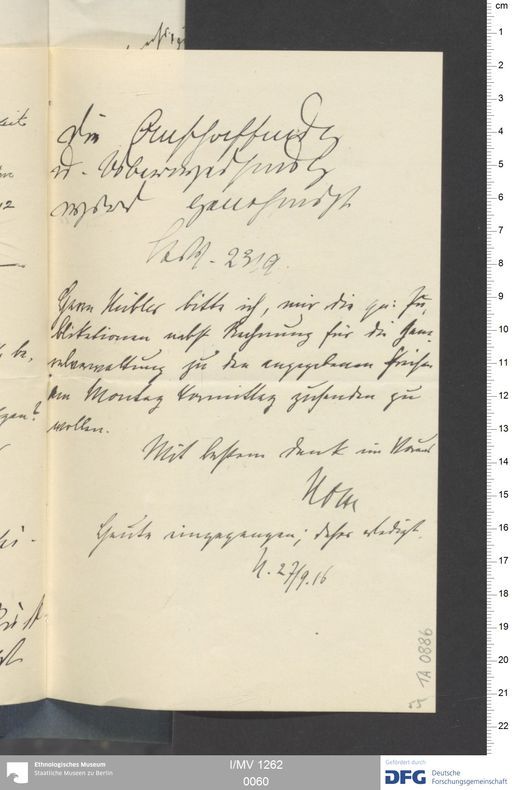 Die Anschaffung
u. Ueberweisung
wird genehmigt
23/9.
Herrn Kübler bitte ich, mir die qu: Pu-
blikationen nebst Rechnung für die Gene-
ralverwaltung zu den angegebenen Preisen
am Montag Vormittag zusenden zu
wollen.
Mit bestem Dank im Voraus
Heute eingegangen; daher erledigt.
27/9.16
TA 0886
cm
1
2
3
4
5
6
7
8
9
10
11
12
13
14
15
16
17
18
19
20
21
22
Ethnologisches Museum
Staatliche Museen zu Berlin
I/MV 1262
0060
Gefördert durch
DFG Deutsche
Forschungsgemeinschaft